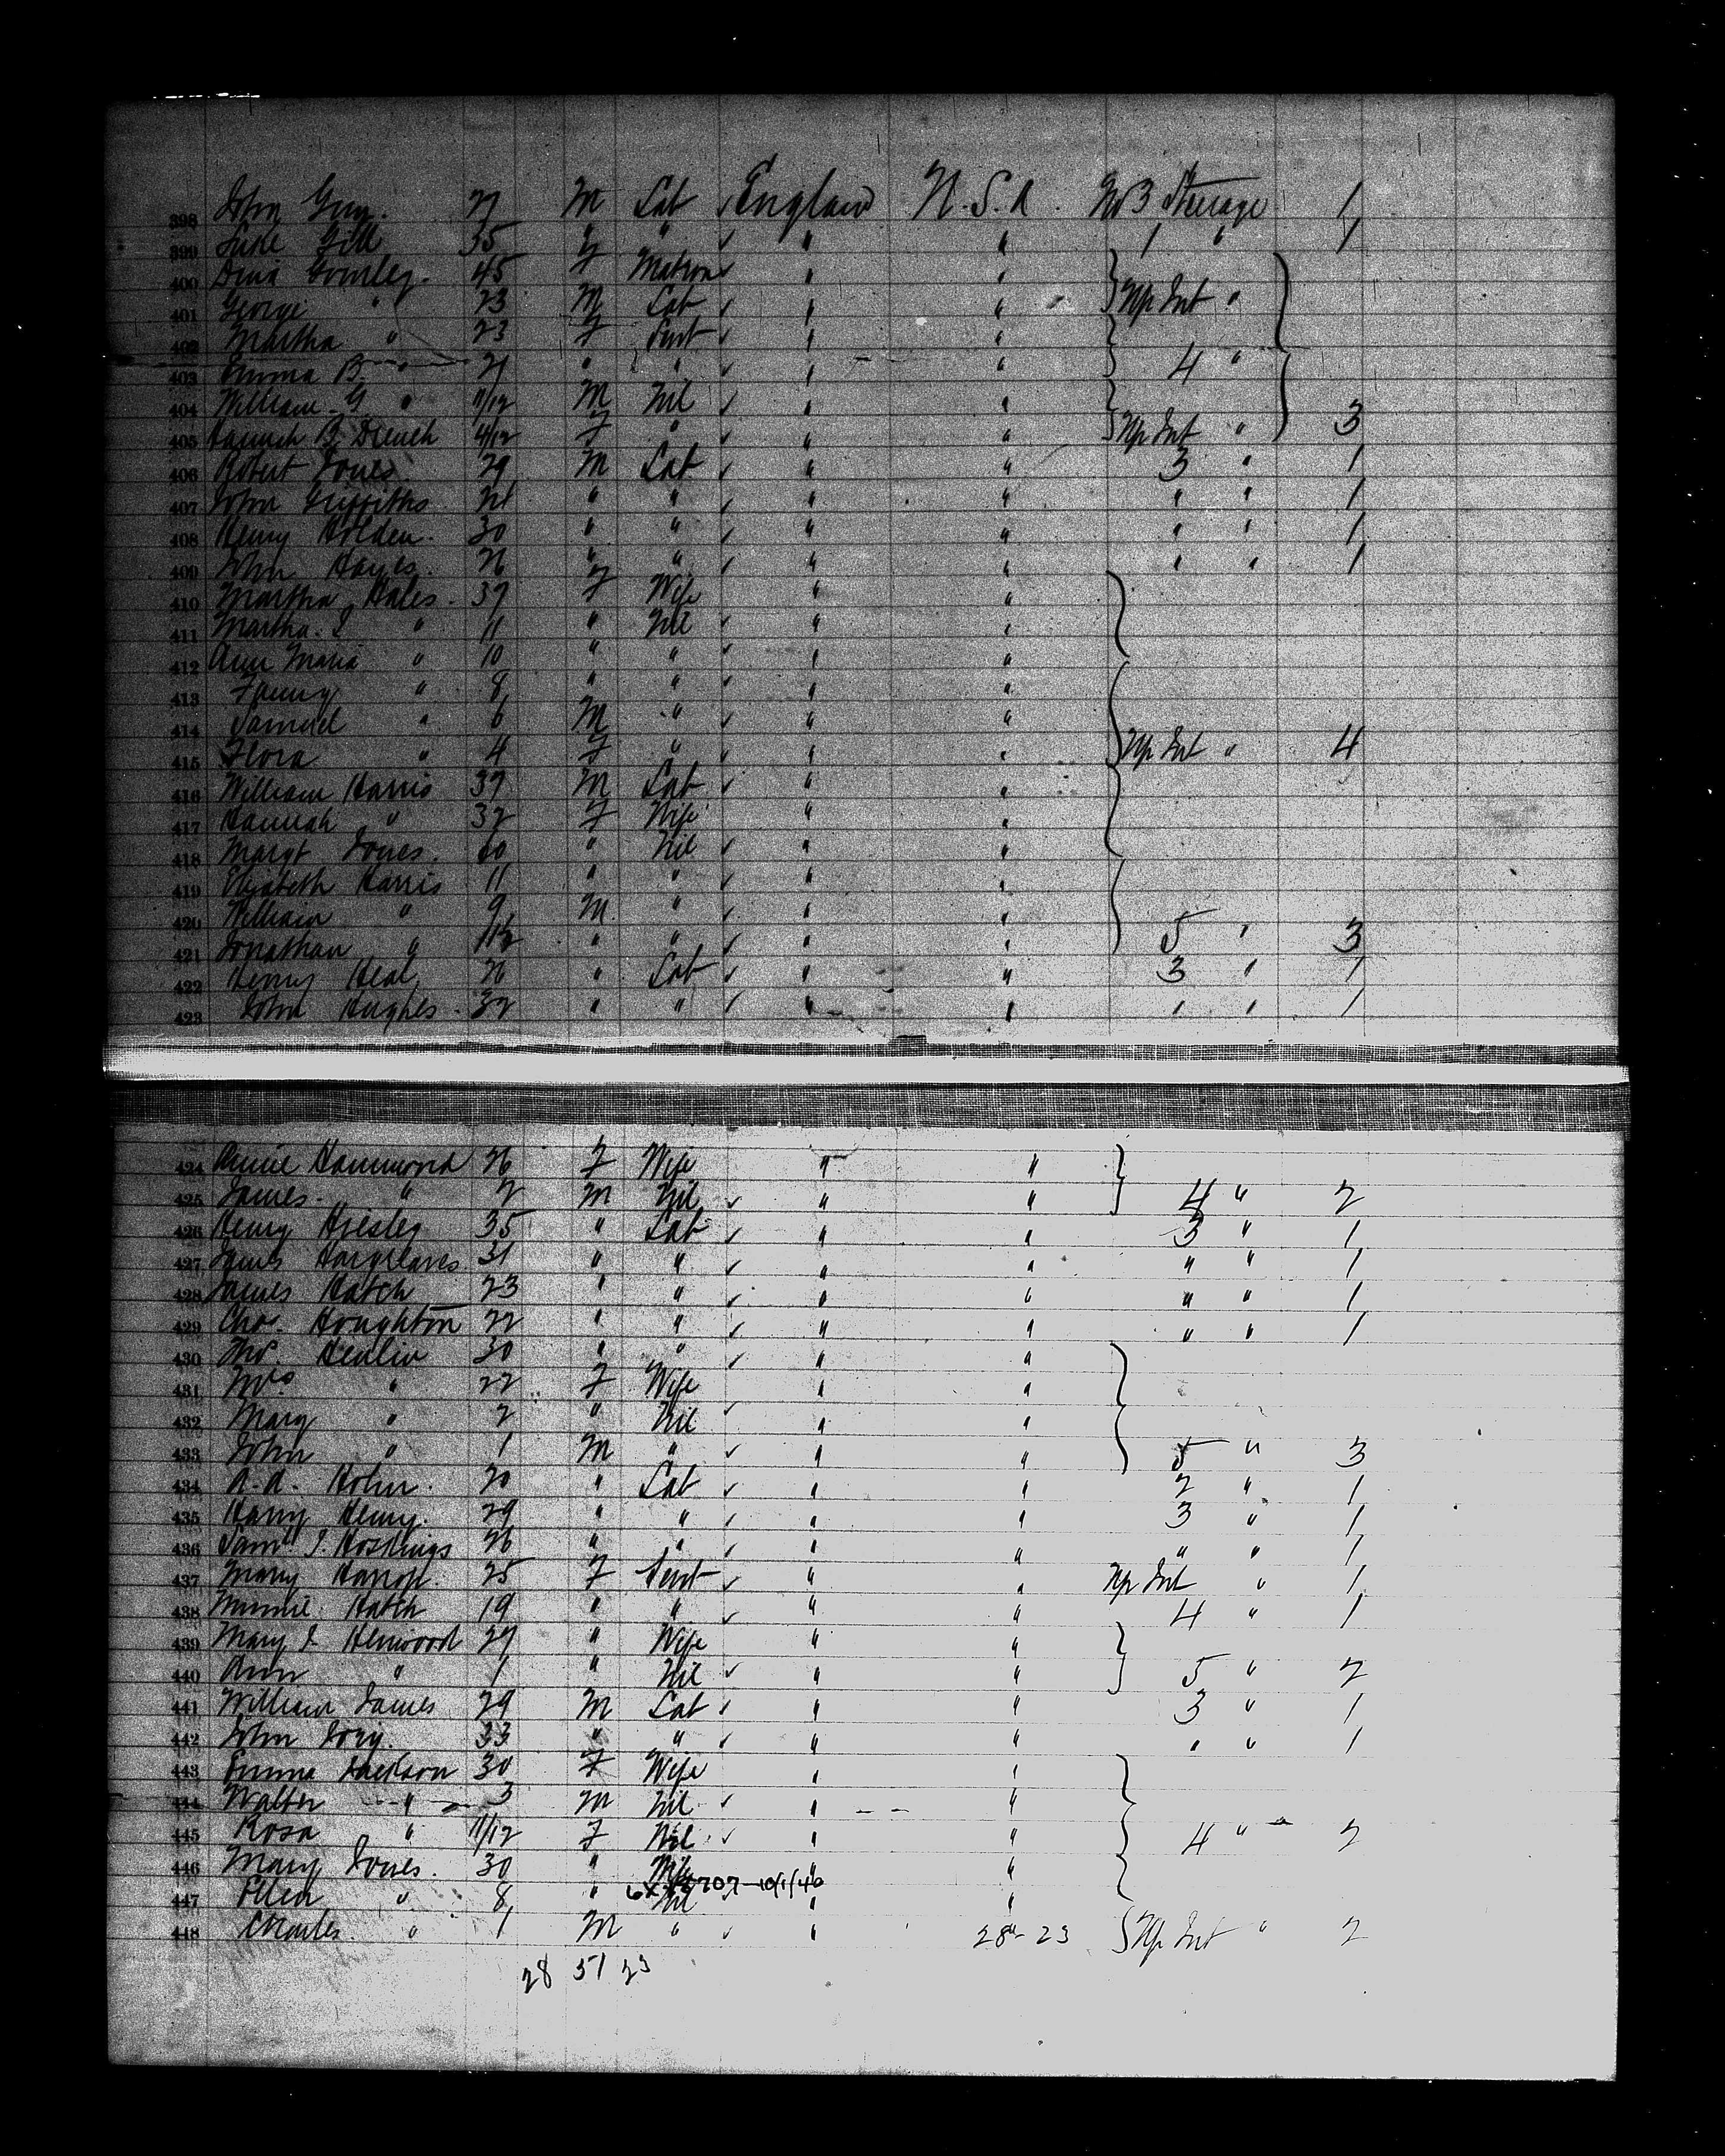 398 John Guy. M Lab ✓ England U.S.A. No 3 Steerage 1
399 Gill 35 " " ✓ " " 1 " 1
400 Dina Gourley. 45 F Matron ✓ " "
401 George " 23 M Lab ✓ " " Up Int "
402 Martha " 23 F Servt ✓ " "
403 Emma B. " 21 " " ✓ " " 4 "
404 William G " 11/12 M Nil ✓ " "
405 Hannah B. French 4/12 F " ✓ " " Up Int " 3
406 Robert Jones. 29 M Lab ✓ " " 3 " 1
407 John Griffiths 21 " " ✓ " " " " 1
408 Henry Holden. 30 " " ✓ " " " " 1
409 John Hayes. 26 " " ✓ " " " " 1
410 Martha Hales. 37 F Wife " "
411 Martha J " 11 " Nil ✓ " "
412 Ann Maria " 10 " " ✓ " "
413 Fanny " 8 " " ✓ " "
414 Samuel " 6 M " ✓ " "
415 Flora " 4 F " ✓ " " Up Int " 4
416 William Harris 37 M Lab ✓ " "
417 Hannah " 32 F Wife " "
418 Margt Jones. " Nil ✓ " "
419 Elizabeth Harris 11 " " ✓ " "
420 William " 9 M " ✓ " "
421 Jonathan " " " ✓ " " 5 " 3
422 Henry Heal 26 " Lab ✓ " " 3 " 1
423 John Hughes. 32 " " ✓ " " " " 1
424 Annie Hammond 26 F Wife " "
425 James. " 2 M Nil ✓ " " 4 " 2
426 Henry Hiesley 35 " Lab ✓ " " 3 " 1
427 James Hargreaves 31 " " ✓ " " " " 1
428 James Hatch 23 " " ✓ " " " " 1
429 Chas. Houghton 22 " " ✓ " " " " 1
430 Henlin 30 " " ✓ " "
431 Mrs " 22 F Wife " "
432 Mary " 2 " Nil ✓ " "
433 John " 1 M " ✓ " " 5 " 3
434 A.A. Holm. 20 " Lab ✓ " " 2 " 1
435 Harry Henry. 29 " " ✓ " " 3 " 1
436 Saml. J. Hoskings 26 " " ✓ " " " " 1
437 Mary Harrop. 25 F Servt ✓ " " Up Int " 1
438 Minnie Hatch 19 " " ✓ " " 4 " 1
439 Mary J. Henwood 27 " Wife " "
440 Ann " 1 " Nil ✓ " " 5 " 2
441 William James 29 M Lab ✓ " " 3 " 1
442 John Jory. 33 " " ✓ " " " " 1
443 Emma Jackson 30 F Wife " "
444 Walter " 3 M Nil ✓ " "
445 Rosa " 11/12 F Nil ✓ " " 4 " 2
446 Mary Jones. 30 " Wife " "
447 Ellen " 8 " Nil " "
448 Charles " 1 M " ✓ " 28-23 Up Int " 2
28 51 23